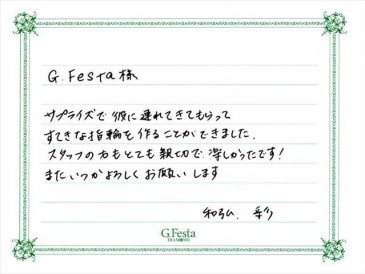 G.Festa様
サプライズで彼に連れてきてもらって
すてきな指輪を作ることができました.
スタッフの方もとても親切で楽しかったです!
またいつかよろしくお願いします
和弘. 彩
G.Festa
DIAMOND